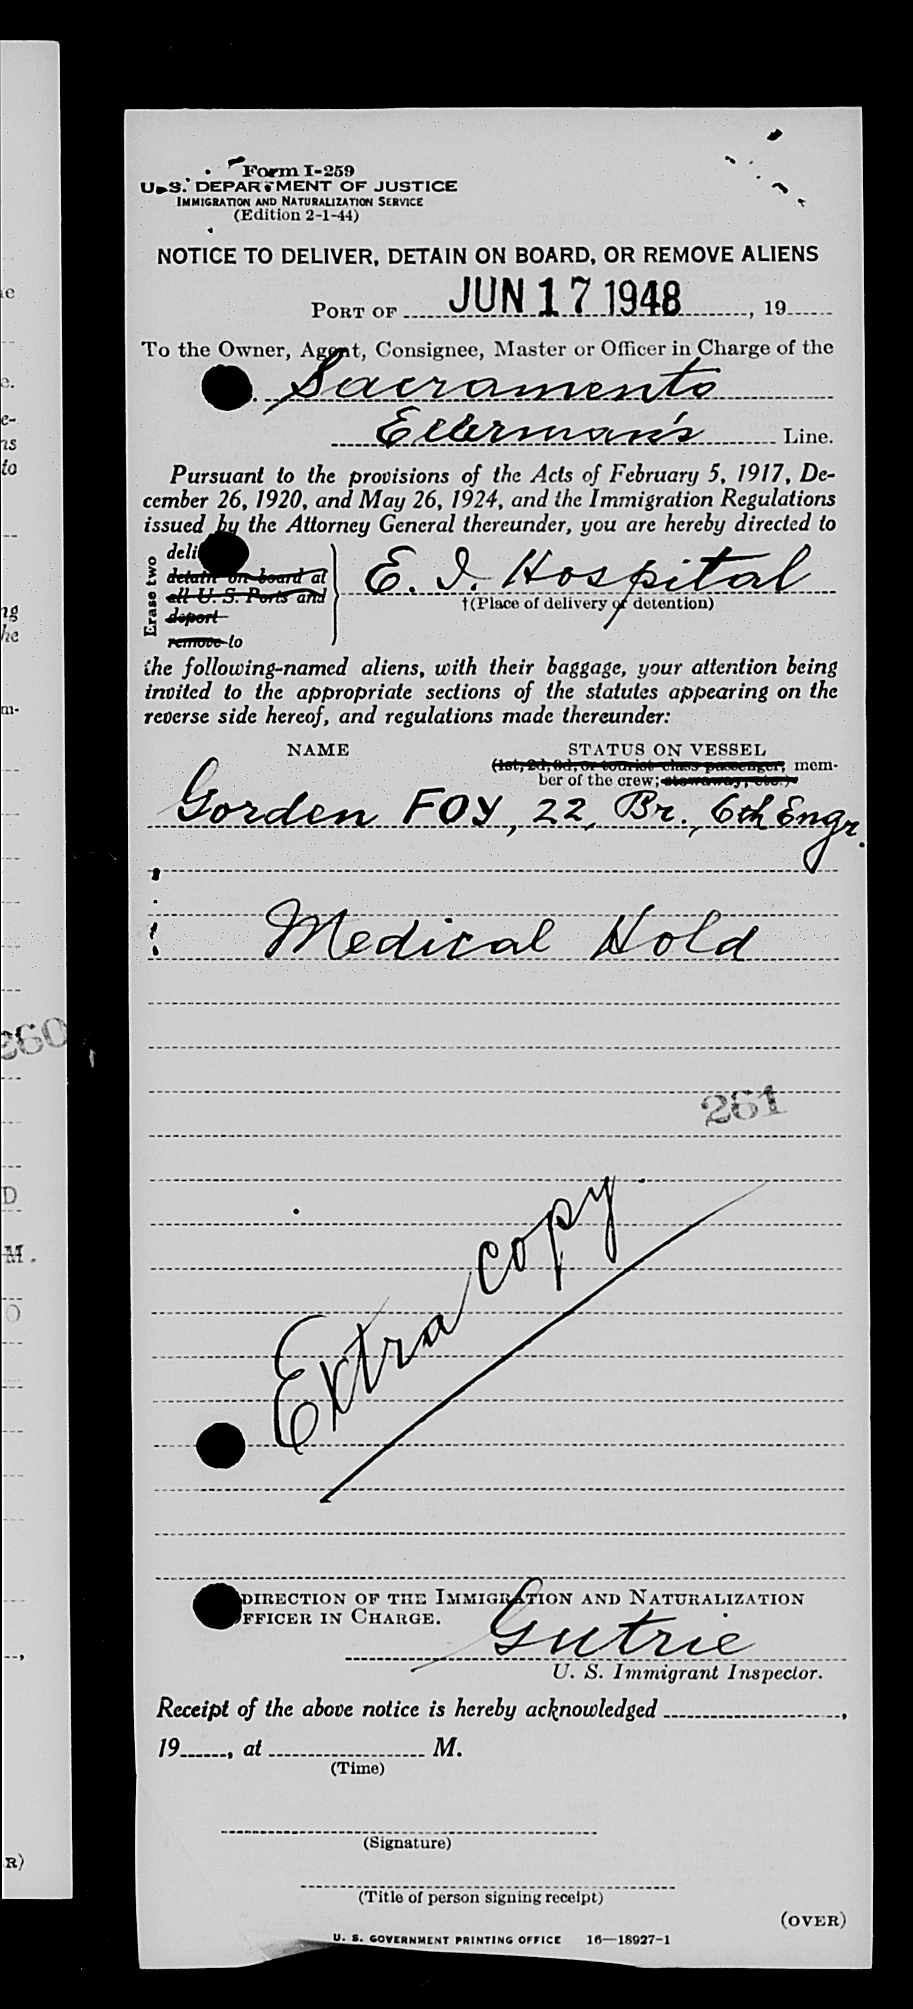 Form I-259
U. S. DEPARTMENT OF JUSTICE
IMMIGRATION AND NATURALIZATION SERVICE
(Edition 2-1-44)
NOTICE TO DELIVER, DETAIN ON BOARD, OR REMOVE ALIENS
PORT OF JUN 17 1948, 19
To the Owner, Agent, Consignee, Master or Officer in Charge of the
Sacramento
Ellerman's Line.
Pursuant to the provisions of the Acts of February 5, 1917, De-
cember 26, 1920, and May 26, 1924, and the Immigration Regulations
issued by the Attorney General thereunder, you are hereby directed to
Erase two
deli
detain on board at
all U. S. Ports and
deport
remove to
E. I. Hospital
†(Place of delivery or detention)
the following-named aliens, with their baggage, your attention being
invited to the appropriate sections of the statutes appearing on the
reverse side hereof, and regulations made thereunder:
NAME STATUS ON VESSEL
(1st, 2d, 3d, or tourist class passenger, mem-
ber of the crew; stowaway, etc.)
Gorden FOY, 22, Br., 6th Engr.
Medical Hold
260
261
Extra copy
DIRECTION OF THE IMMIGRATION AND NATURALIZATION
FFICER IN CHARGE.
Gutrie
U. S. Immigrant Inspector.
Receipt of the above notice is hereby acknowledged ,
19 , at M.
(Time)
(Signature)
(Title of person signing receipt)
(OVER)
U. S. GOVERNMENT PRINTING OFFICE 16—18927-1